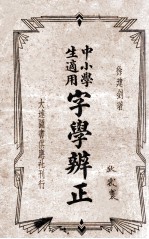 徐建
中小學
生適用
字學辨正
大達圖書供應社刊行